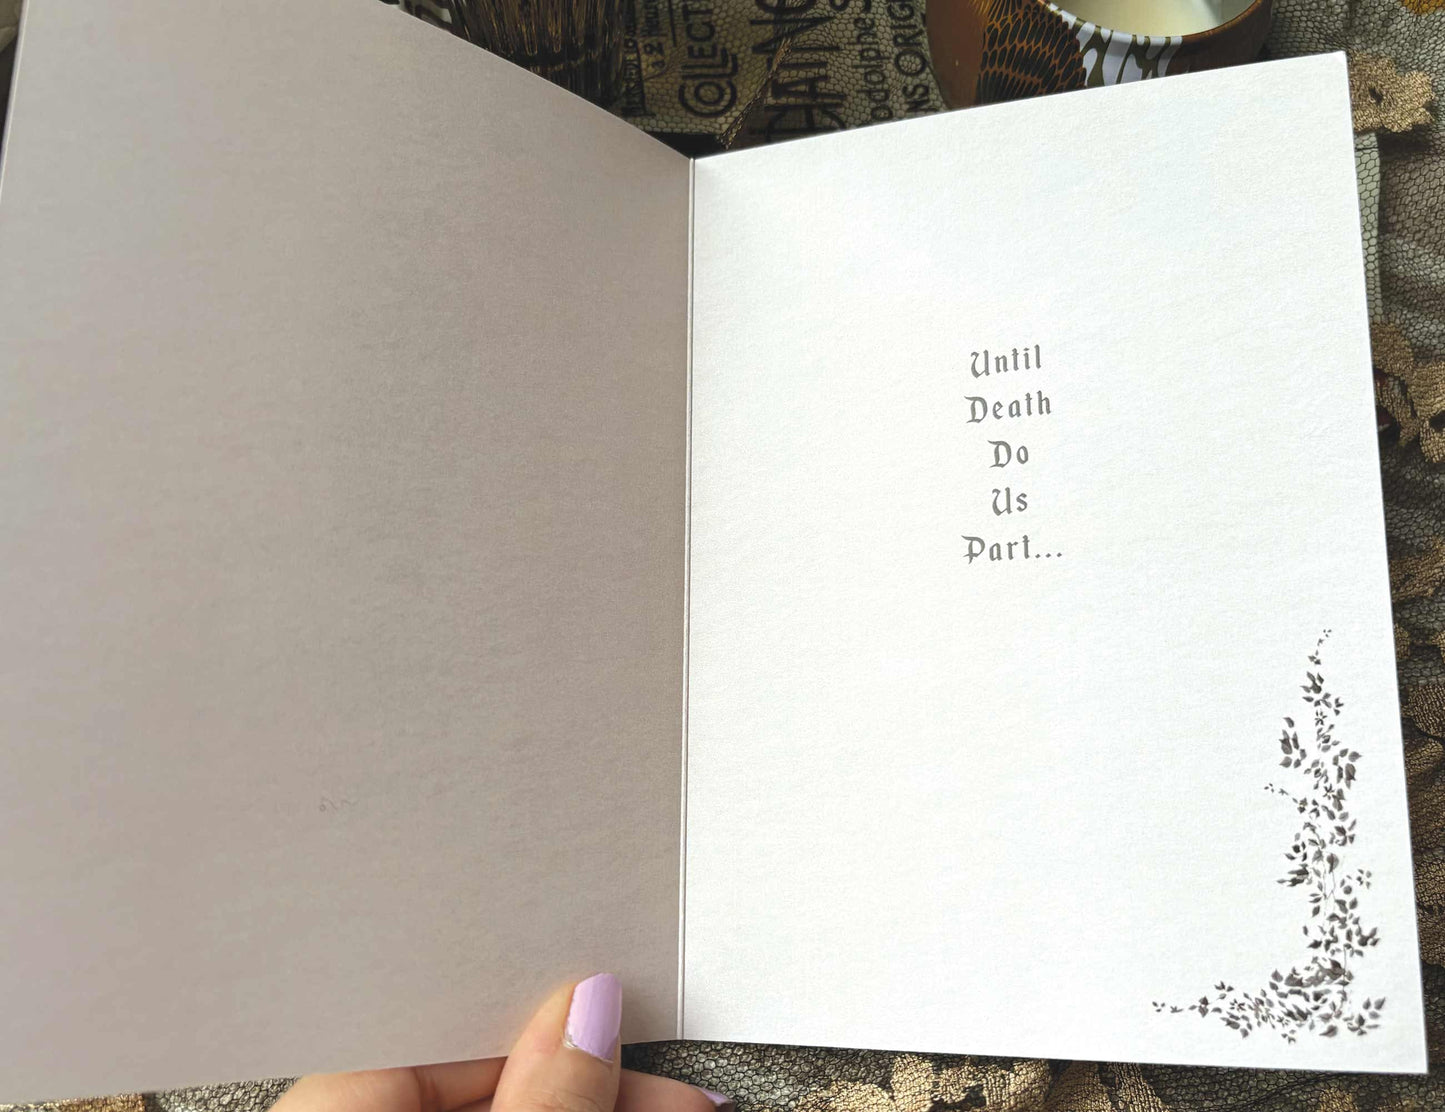 COLLECT
Until
Death
Do
Us
Part...